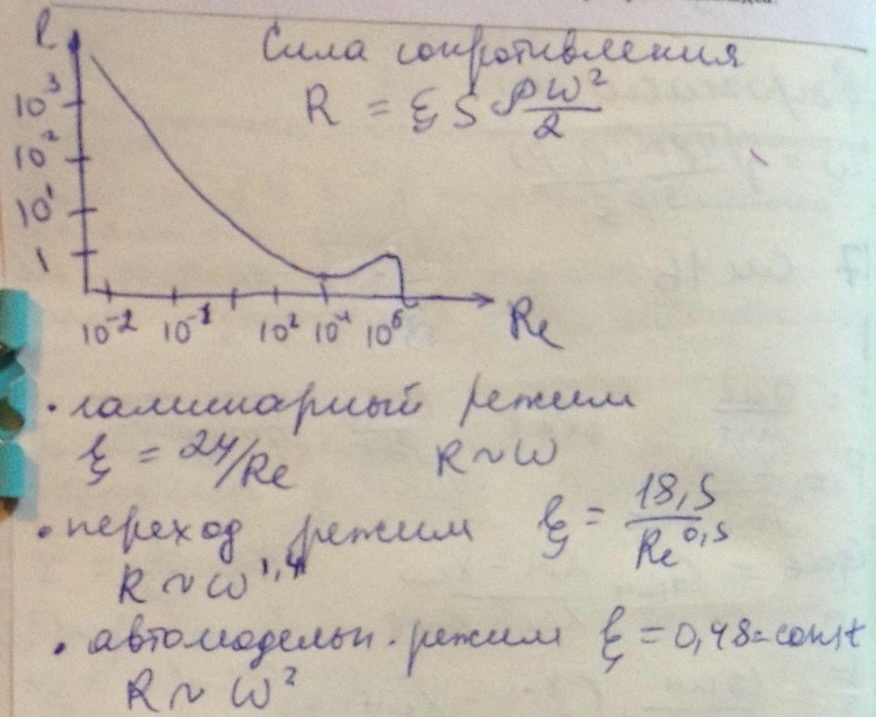 R
Сила сопротивления
R = ξ S ρw²/2
10³
10²
10¹
1
10⁻² 10⁻¹ 10² 10⁴ 10⁶ Re
• ламинарный режим
ξ = 24/Re R ~ w
• переход режим ξ = 18,5/Re^0,5
R ~ w^1,4
• автомодельн. режим ξ = 0,48 = const
R ~ w²